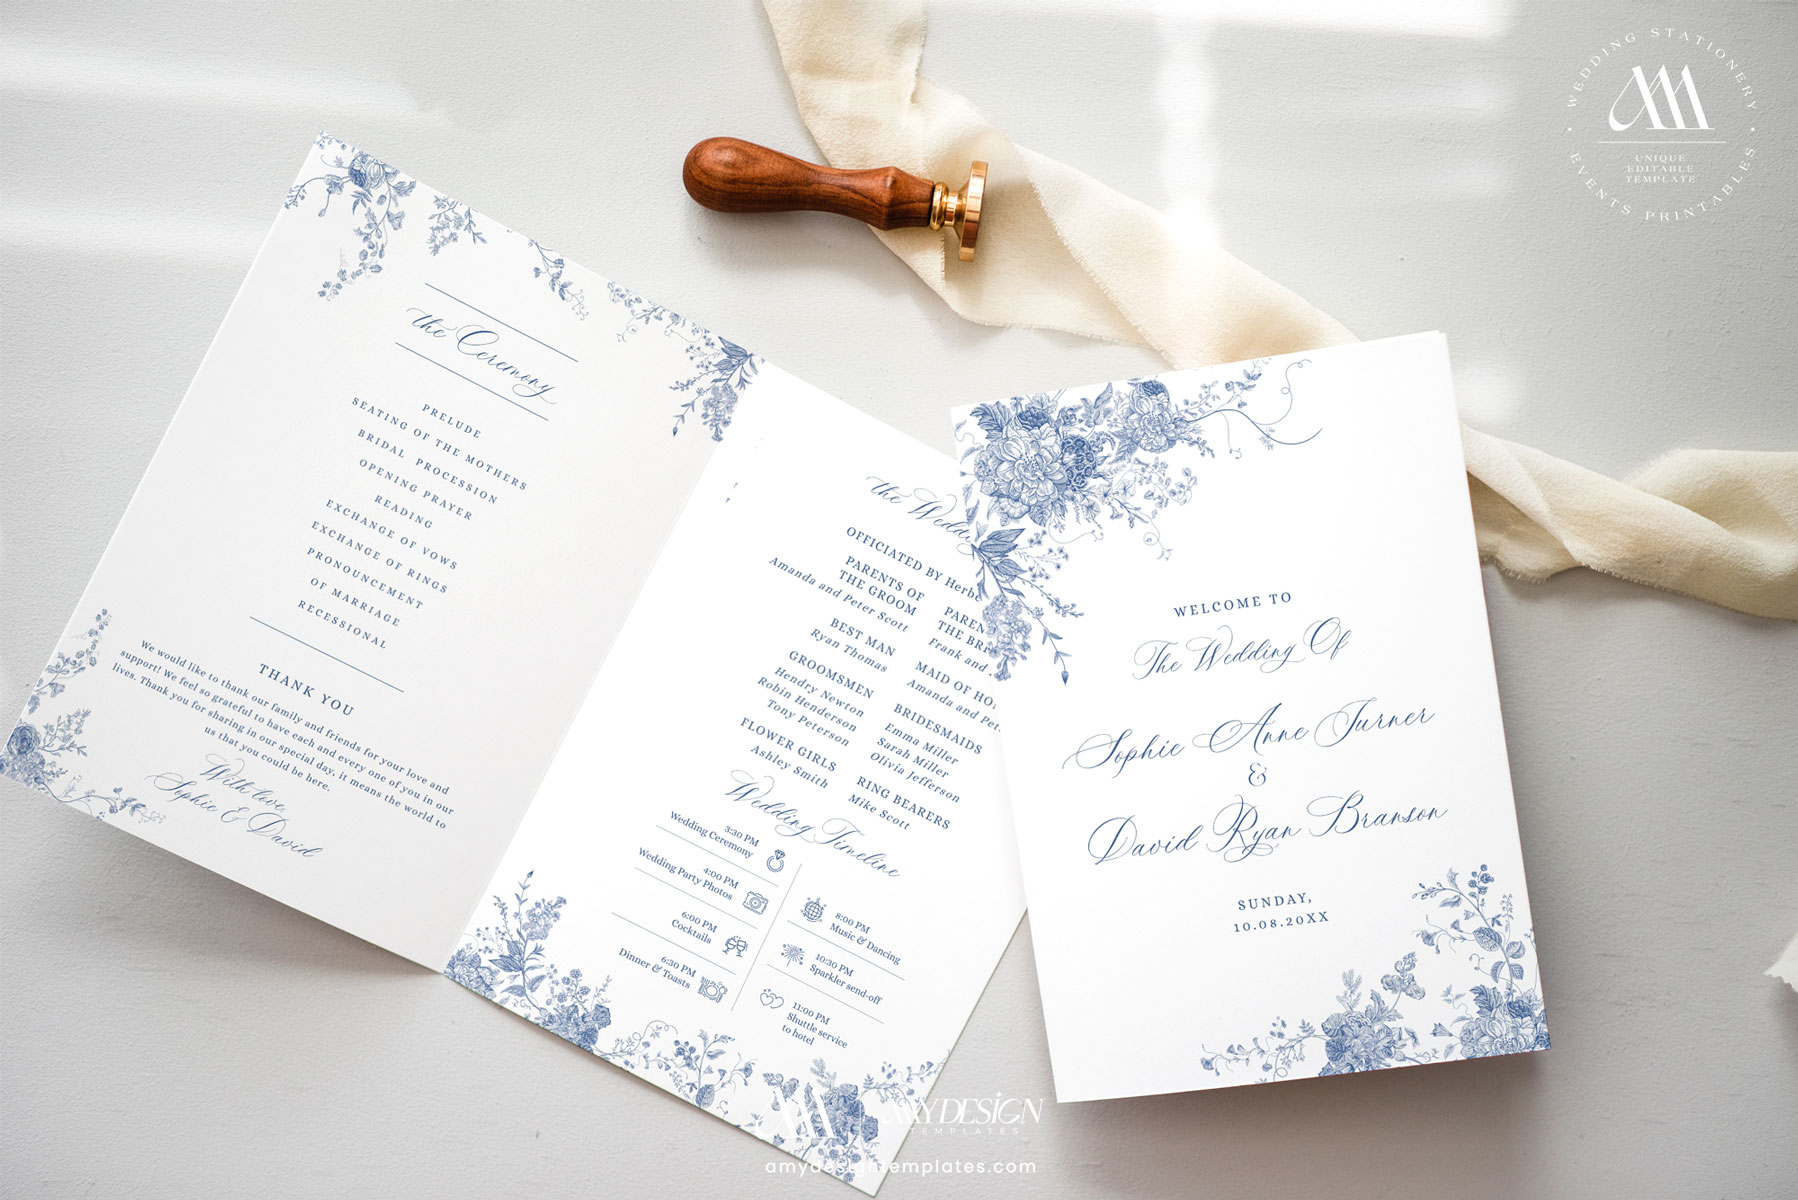 the Ceremony
PRELUDE
SEATING OF THE MOTHERS
BRIDAL PROCESSION
OPENING PRAYER
READING
EXCHANGE OF VOWS
EXCHANGE OF RINGS
PRONOUNCEMENT
OF MARRIAGE
RECESSIONAL
THANK YOU
We would like to thank our family and friends for your love and
support! We feel so grateful to have each and every one of you in our
lives. Thank you for sharing in our special day, it means the world to
us that you could be here.
With love,
Sophie & David
the Wedd
OFFICIATED BY Herbe
PARENTS OF
THE GROOM
Amanda and Peter Scott
BEST MAN
Ryan Thomas
GROOMSMEN
Hendry Newton
Robin Henderson
Tony Peterson
FLOWER GIRLS
Ashley Smith
PAREN
THE BR
Frank and
MAID OF HO
Amanda and Pet
BRIDESMAIDS
Emma Miller
Sarah Miller
Olivia Jefferson
RING BEARERS
Mike Scott
Wedding Timeline
3:30 PM
Wedding Ceremony
4:00 PM
Wedding Party Photos
6:00 PM
Cocktails
6:30 PM
Dinner & Toasts
8:00 PM
Music & Dancing
10:30 PM
Sparkler send-off
11:00 PM
Shuttle service
to hotel
WELCOME TO
The Wedding Of
Sophie Anne Turner
&
David Ryan Branson
SUNDAY,
10.08.20XX
WEDDING STATIONERY
AM
UNIQUE
EDITABLE
TEMPLATE
EVENTS PRINTABLES
AMYDESIGN
TEMPLATES
amydesigntemplates.com